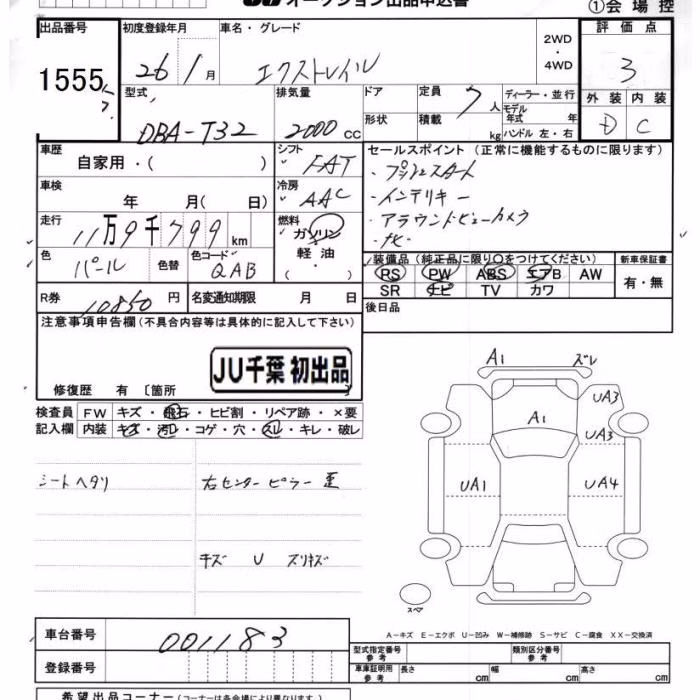 オークション出品申込書
①会場控
出品番号 初度登録年月 車名・グレード 2WD・4WD 評価点
1555 26/1月 エクストレイル 3
型式 排気量 ドア 定員 7人 ディーラー・並行 外装 内装
DBA-T32 2000cc 形状 積載 kg モデル年式 年 ハンドル 左・右 D C
車歴 シフト セールスポイント (正常に機能するものに限ります)
自家用・( ) FAT ・プッシュスタート
車検 冷房 ・インテリキー
年 月( 日) AAC ・アラウンドビューカメラ
走行 燃料 ・ナビ
11万9千799km ガソリン
軽油
・( )
色 色替 色コード 装備品 (純正品に限り〇をつけてください) 新車保証書
パール QAB PS PW ABS エアB AW 有・無
SR ナビ TV カワ
R券 10850円 名変通知期限 月 日 後日品
注意事項申告欄 (不具合内容等は具体的に記入して下さい)
JU千葉 初出品
修復歴 有 〔箇所 〕
検査員 FW キズ・飛石・ヒビ割・リペア跡・×要
記入欄 内装 キズ・汚レ・コゲ・穴・スレ・キレ・破レ
シートヘタリ 右センターピラー歪
キズ U スリキズ
A1 ズレ
UA3
A1 UA3
UA1 UA4
スペア
A-キズ E-エクボ U-凹み W-補修跡 S-サビ C-腐食 XX-交換済
車台番号 001183
型式指定番号 参考 類別区分番号 参考
登録番号
車庫証明用 参考 長さ cm 幅 cm 高さ cm
希望出品コーナー (コーナーは各会場により異なります。)